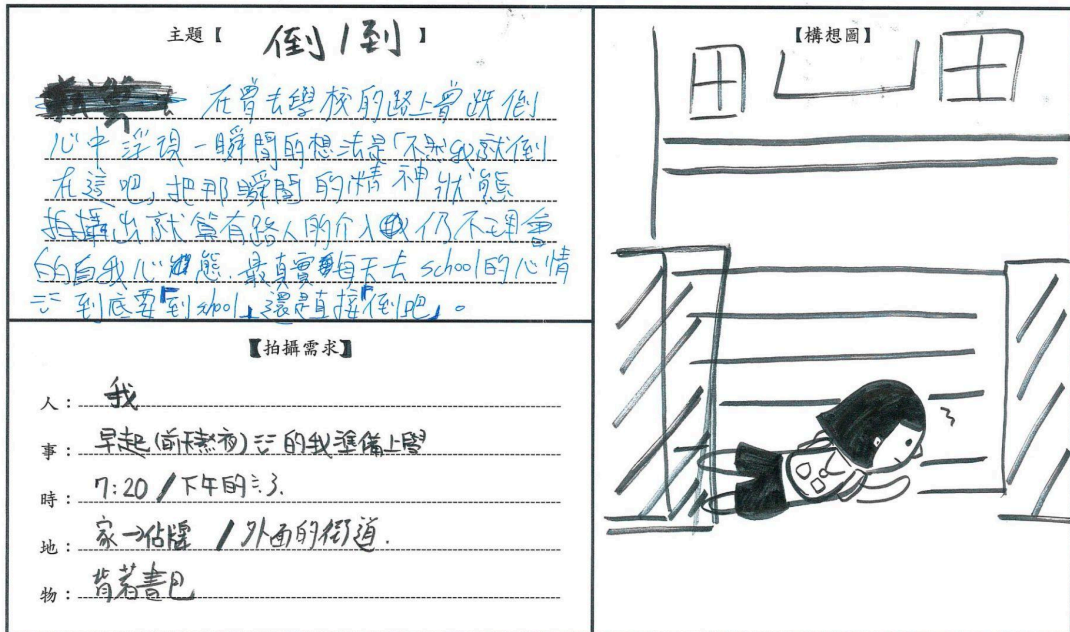 主題【 倒/到 】
在曾去學校的路上曾跌倒
心中浮現一瞬間的想法是「不然我就倒
在這吧」把那瞬間的精神狀態
拍攝出就算有路人的介入我仍不理會
的自我心態.最真實每天去school的心情
到底要「到shool」還是直接「倒吧」。
【構想圖】
【拍攝需求】
人:我
事:早起(前天熬夜)的我準備上學
時:7:20 / 下午的
地:家→佔牌 / 外面的街道.
物:背著書包